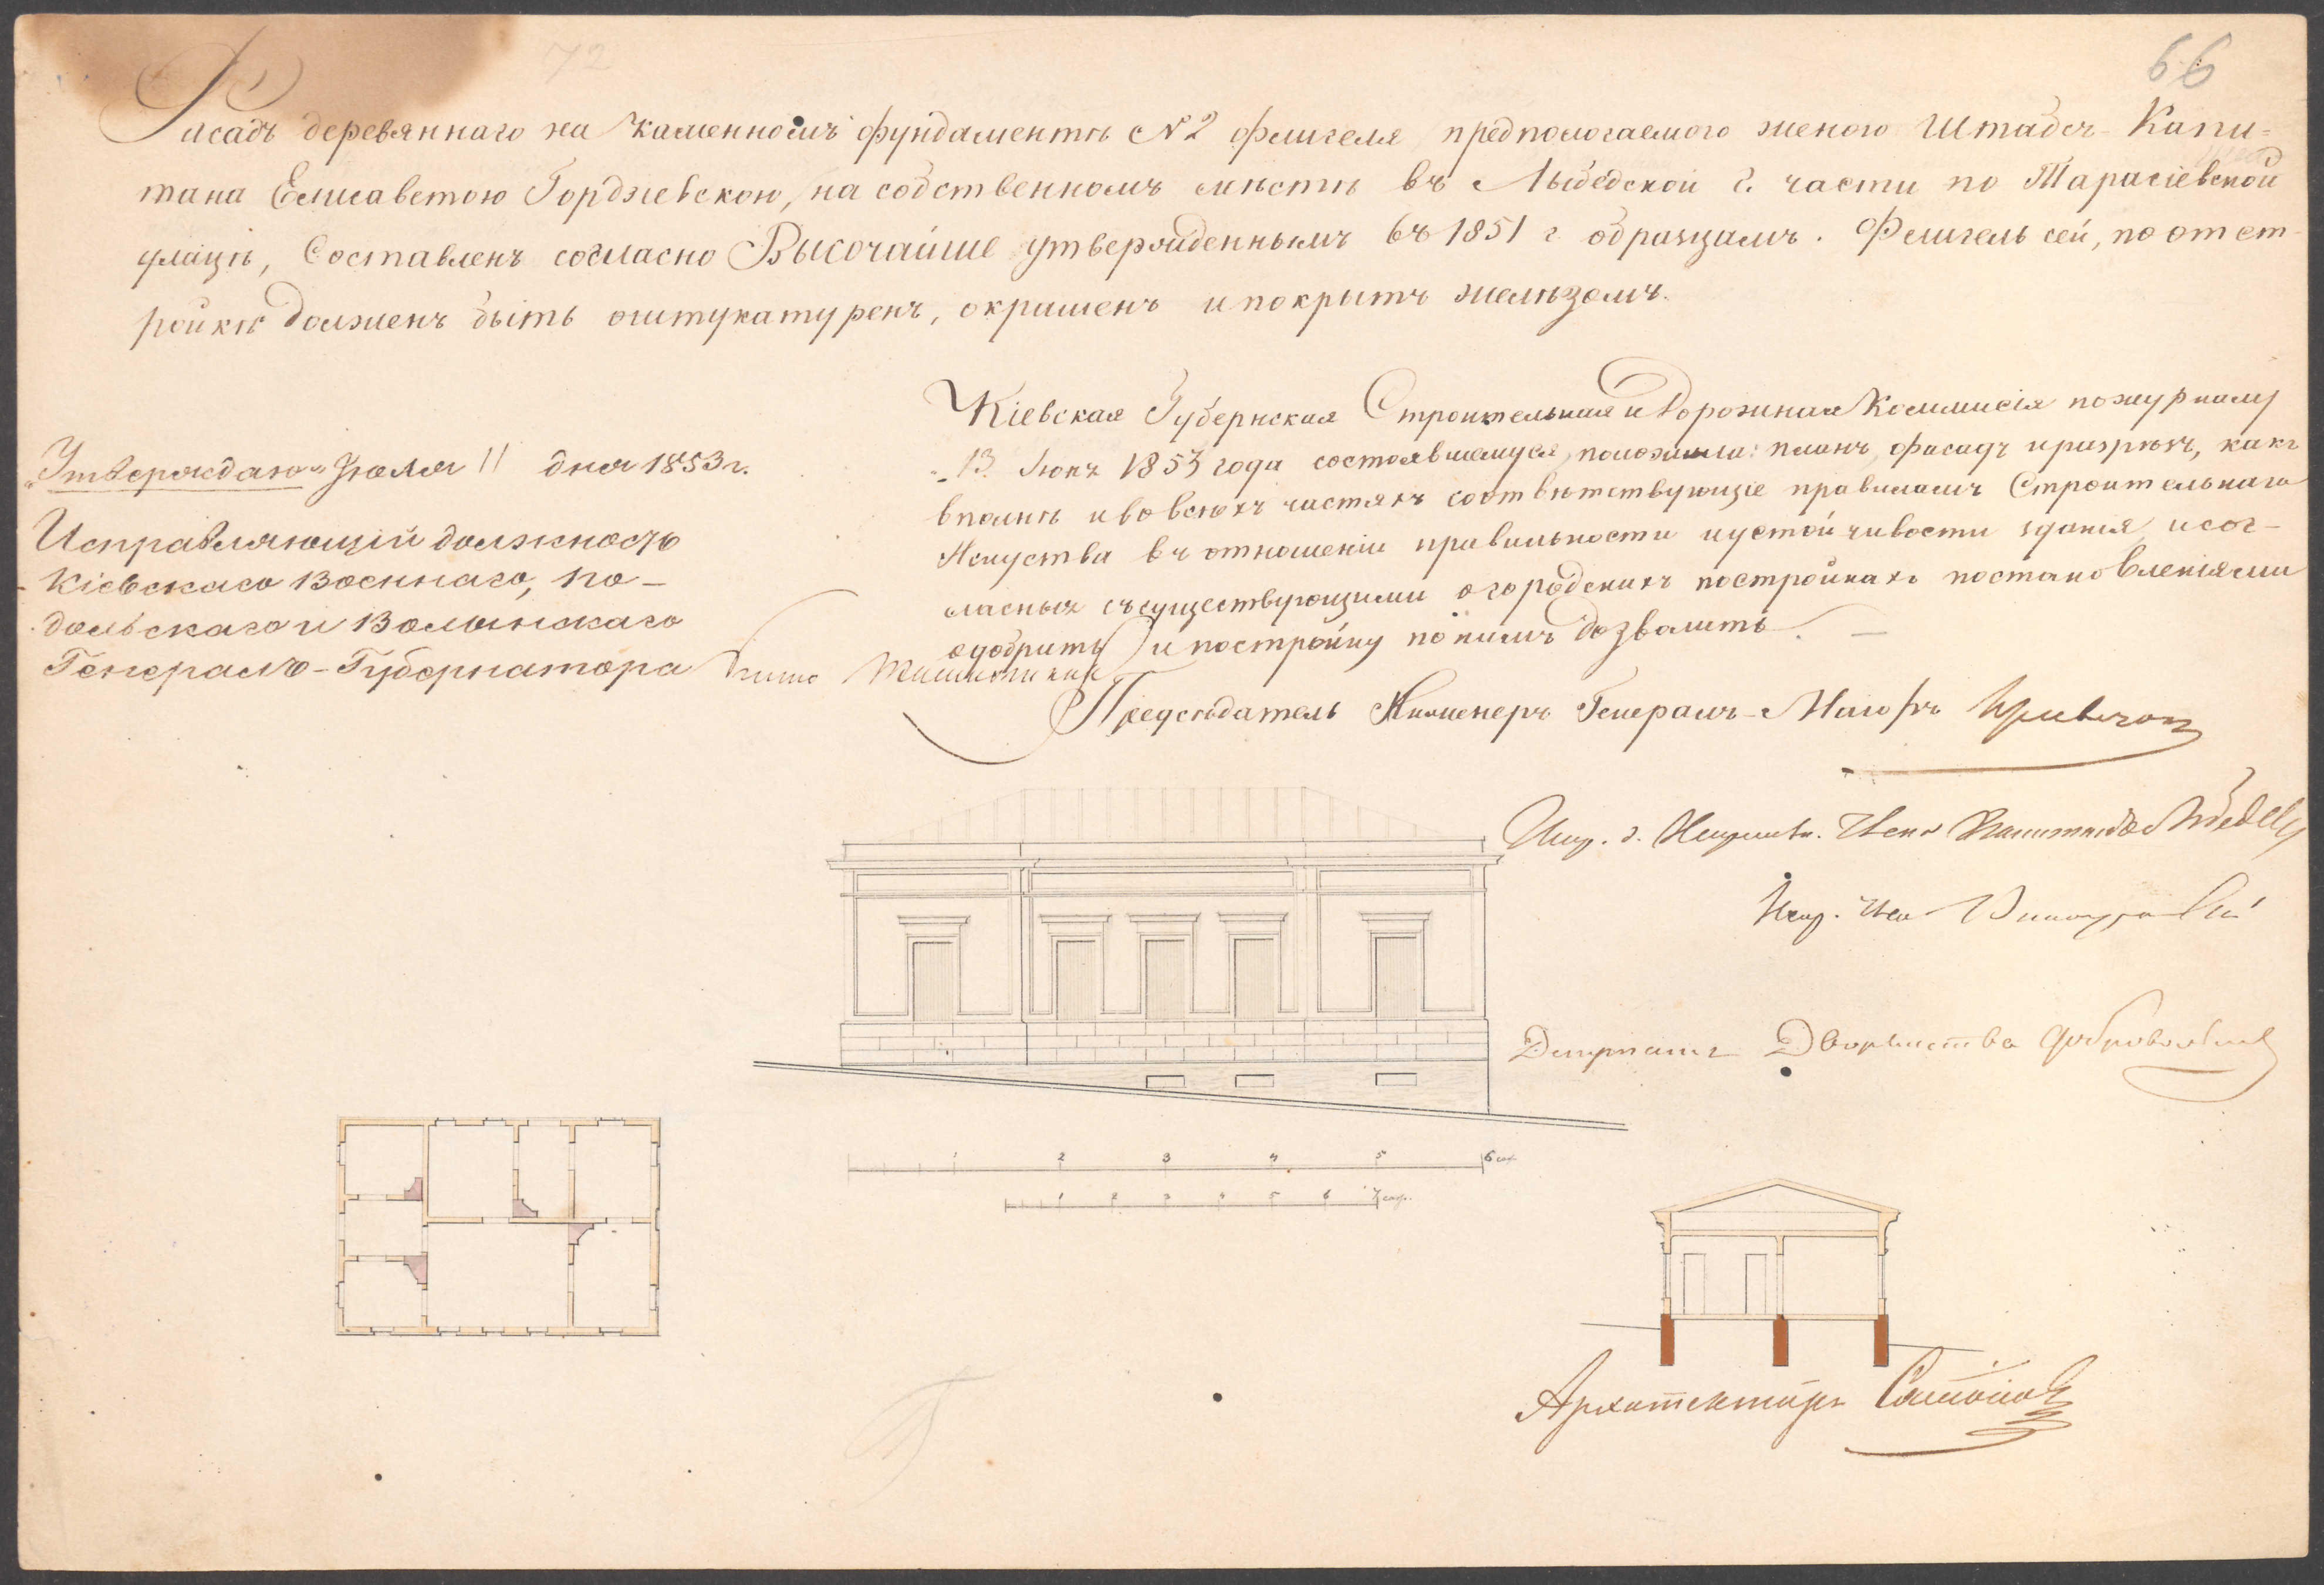 72
66
Фасадъ деревяннаго на каменномъ фундаментѣ № 2 флигеля предпологаемого женою Штабсъ-Капи=
тана Елисаветою Гордзіевскою, на собственномъ мѣстѣ въ Лыбедской г. части по Тарасіевской
улицѣ, Составленъ согласно Высочайше утвержденнымъ въ 1851 г образцамъ. Флигель сей, по отст-
ройкѣ долженъ быть оштукатуренъ, окрашенъ и покрытъ желѣзомъ.
Кіевская Губернская Строительная и Дорожная Коммисія по журналу
13. Іюня 1853 года состоявшемуся, положила: планъ, фасадъ и разрѣзъ, какъ
вполнѣ и во всѣхъ частяхъ соотвѣтствующіе правиламъ Строительнаго
Искуства въ отношеніи правильности и устойчивости зданія, и сог-
ласныя съ существующими о городскихъ постройкахъ постановленіями
одобрить и постройку по нимъ дозволить.
Предсѣдатель Инженеръ Генералъ-Маіоръ
„Утверждаю“ Іюля 11 дня 1853 г.
Исправляющій должность
Кіевскаго Военнаго, По-
дольскаго и Волынскаго
Генералъ-Губернатора
Депутатъ Дворянства
1 2 3 4 5 6 саж
1 2 3 4 5 6 7 саж.
Архитекторъ